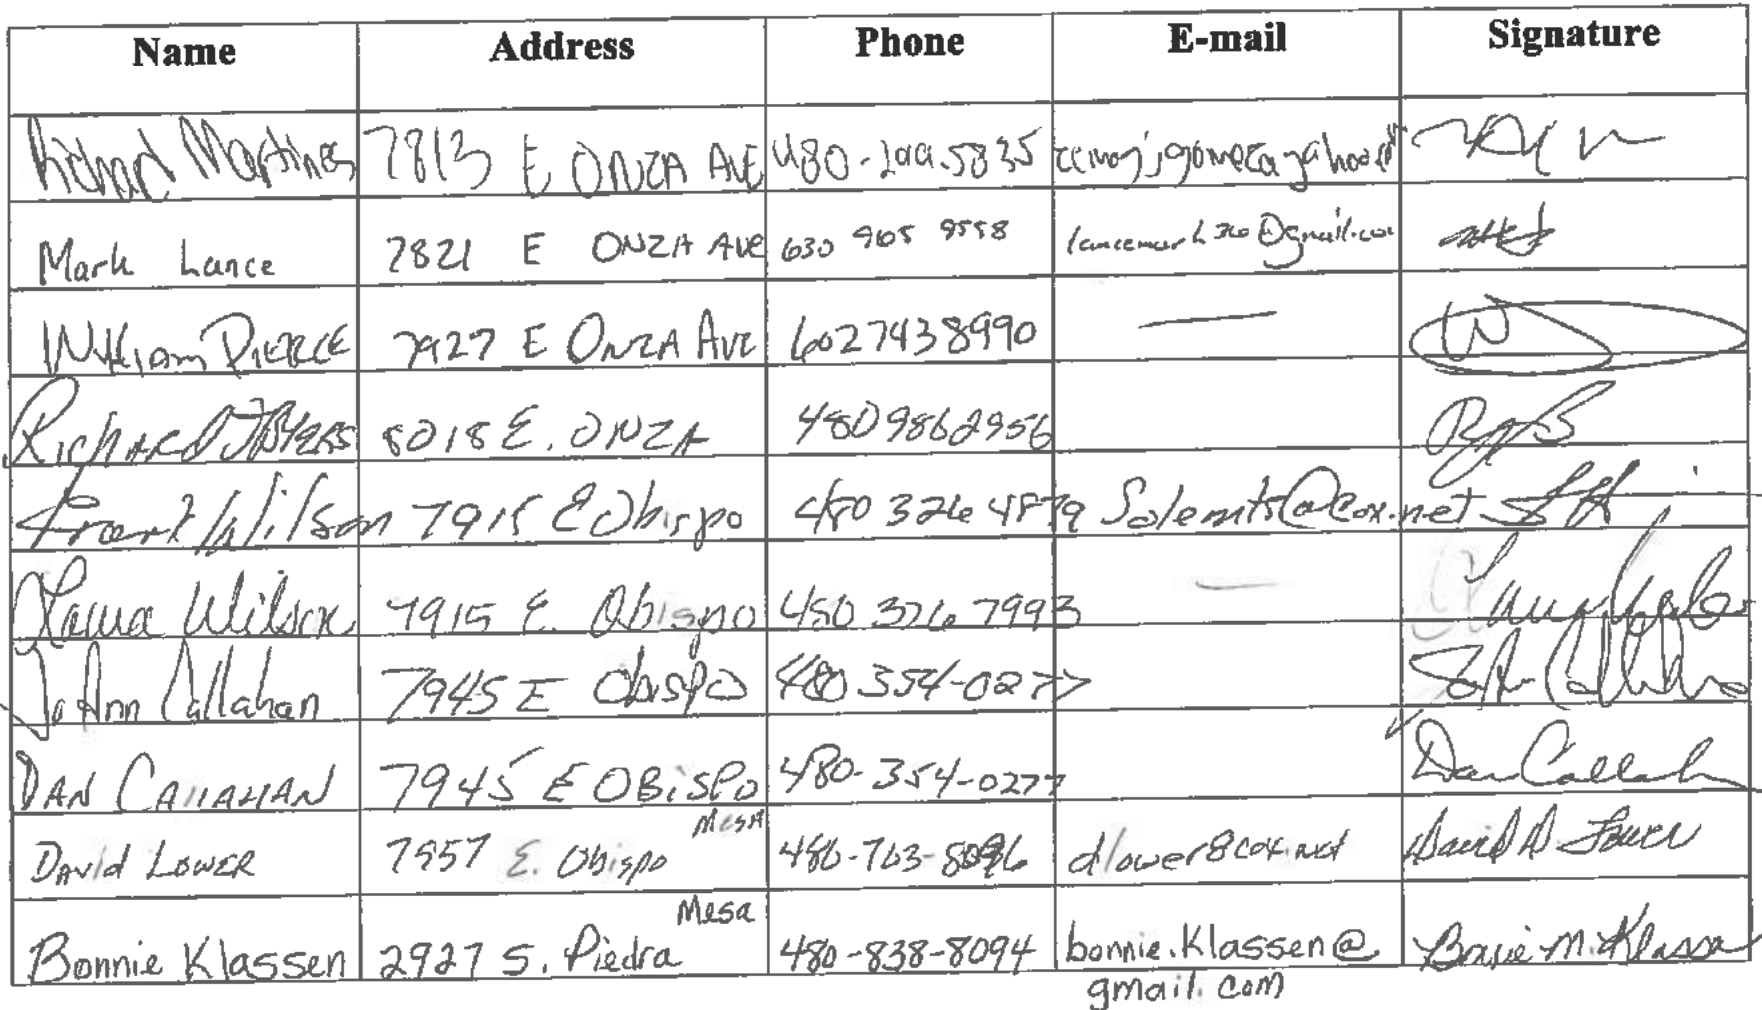 Name Address Phone E-mail Signature
Richard Martines 7813 E ONZA AVE
Mark Lance 7821 E ONZA AVE 630 965 9558
William PIERCE 7927 E ONZA AVE 6027438990 —
RICHARD J BYERS 8018 E. ONZA 4809862956
Frank Wilson 7915 E Obispo 480 326 4879 Solemts@Cox.net
Laura Wilson 7915 E. Obispo 480 326 7993 —
JoAnn Callahan 7945 E Obispo 480 354-0277
DAN CAllAHAN 7945 E OBiSPO 480-354-0277 Dan Callah
Mesa
DAVid LOWER 7957 E. Obispo dlower@cox.net David D Lower
Mesa
Bonnie Klassen 2927 S. Piedra 480-838-8094 bonnie.Klassen@ Bonnie M. Klassen
gmail.com